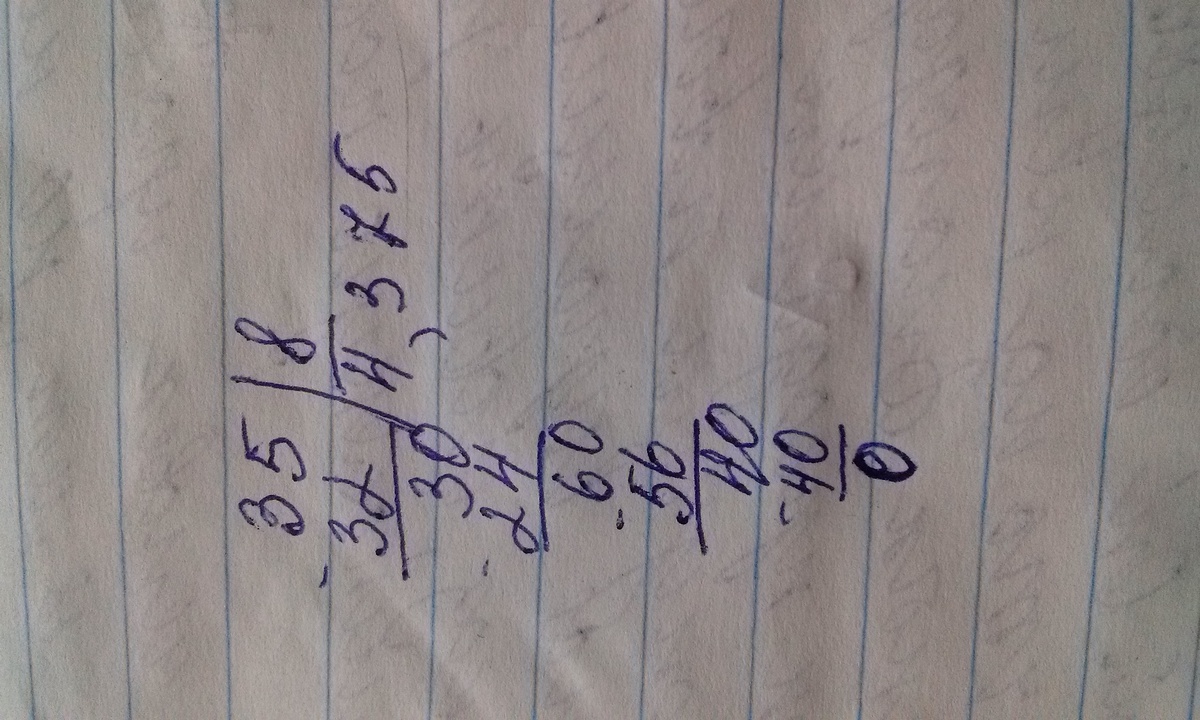 35 | 8
- 32 | 4,375
30
- 24
60
- 56
40
- 40
0